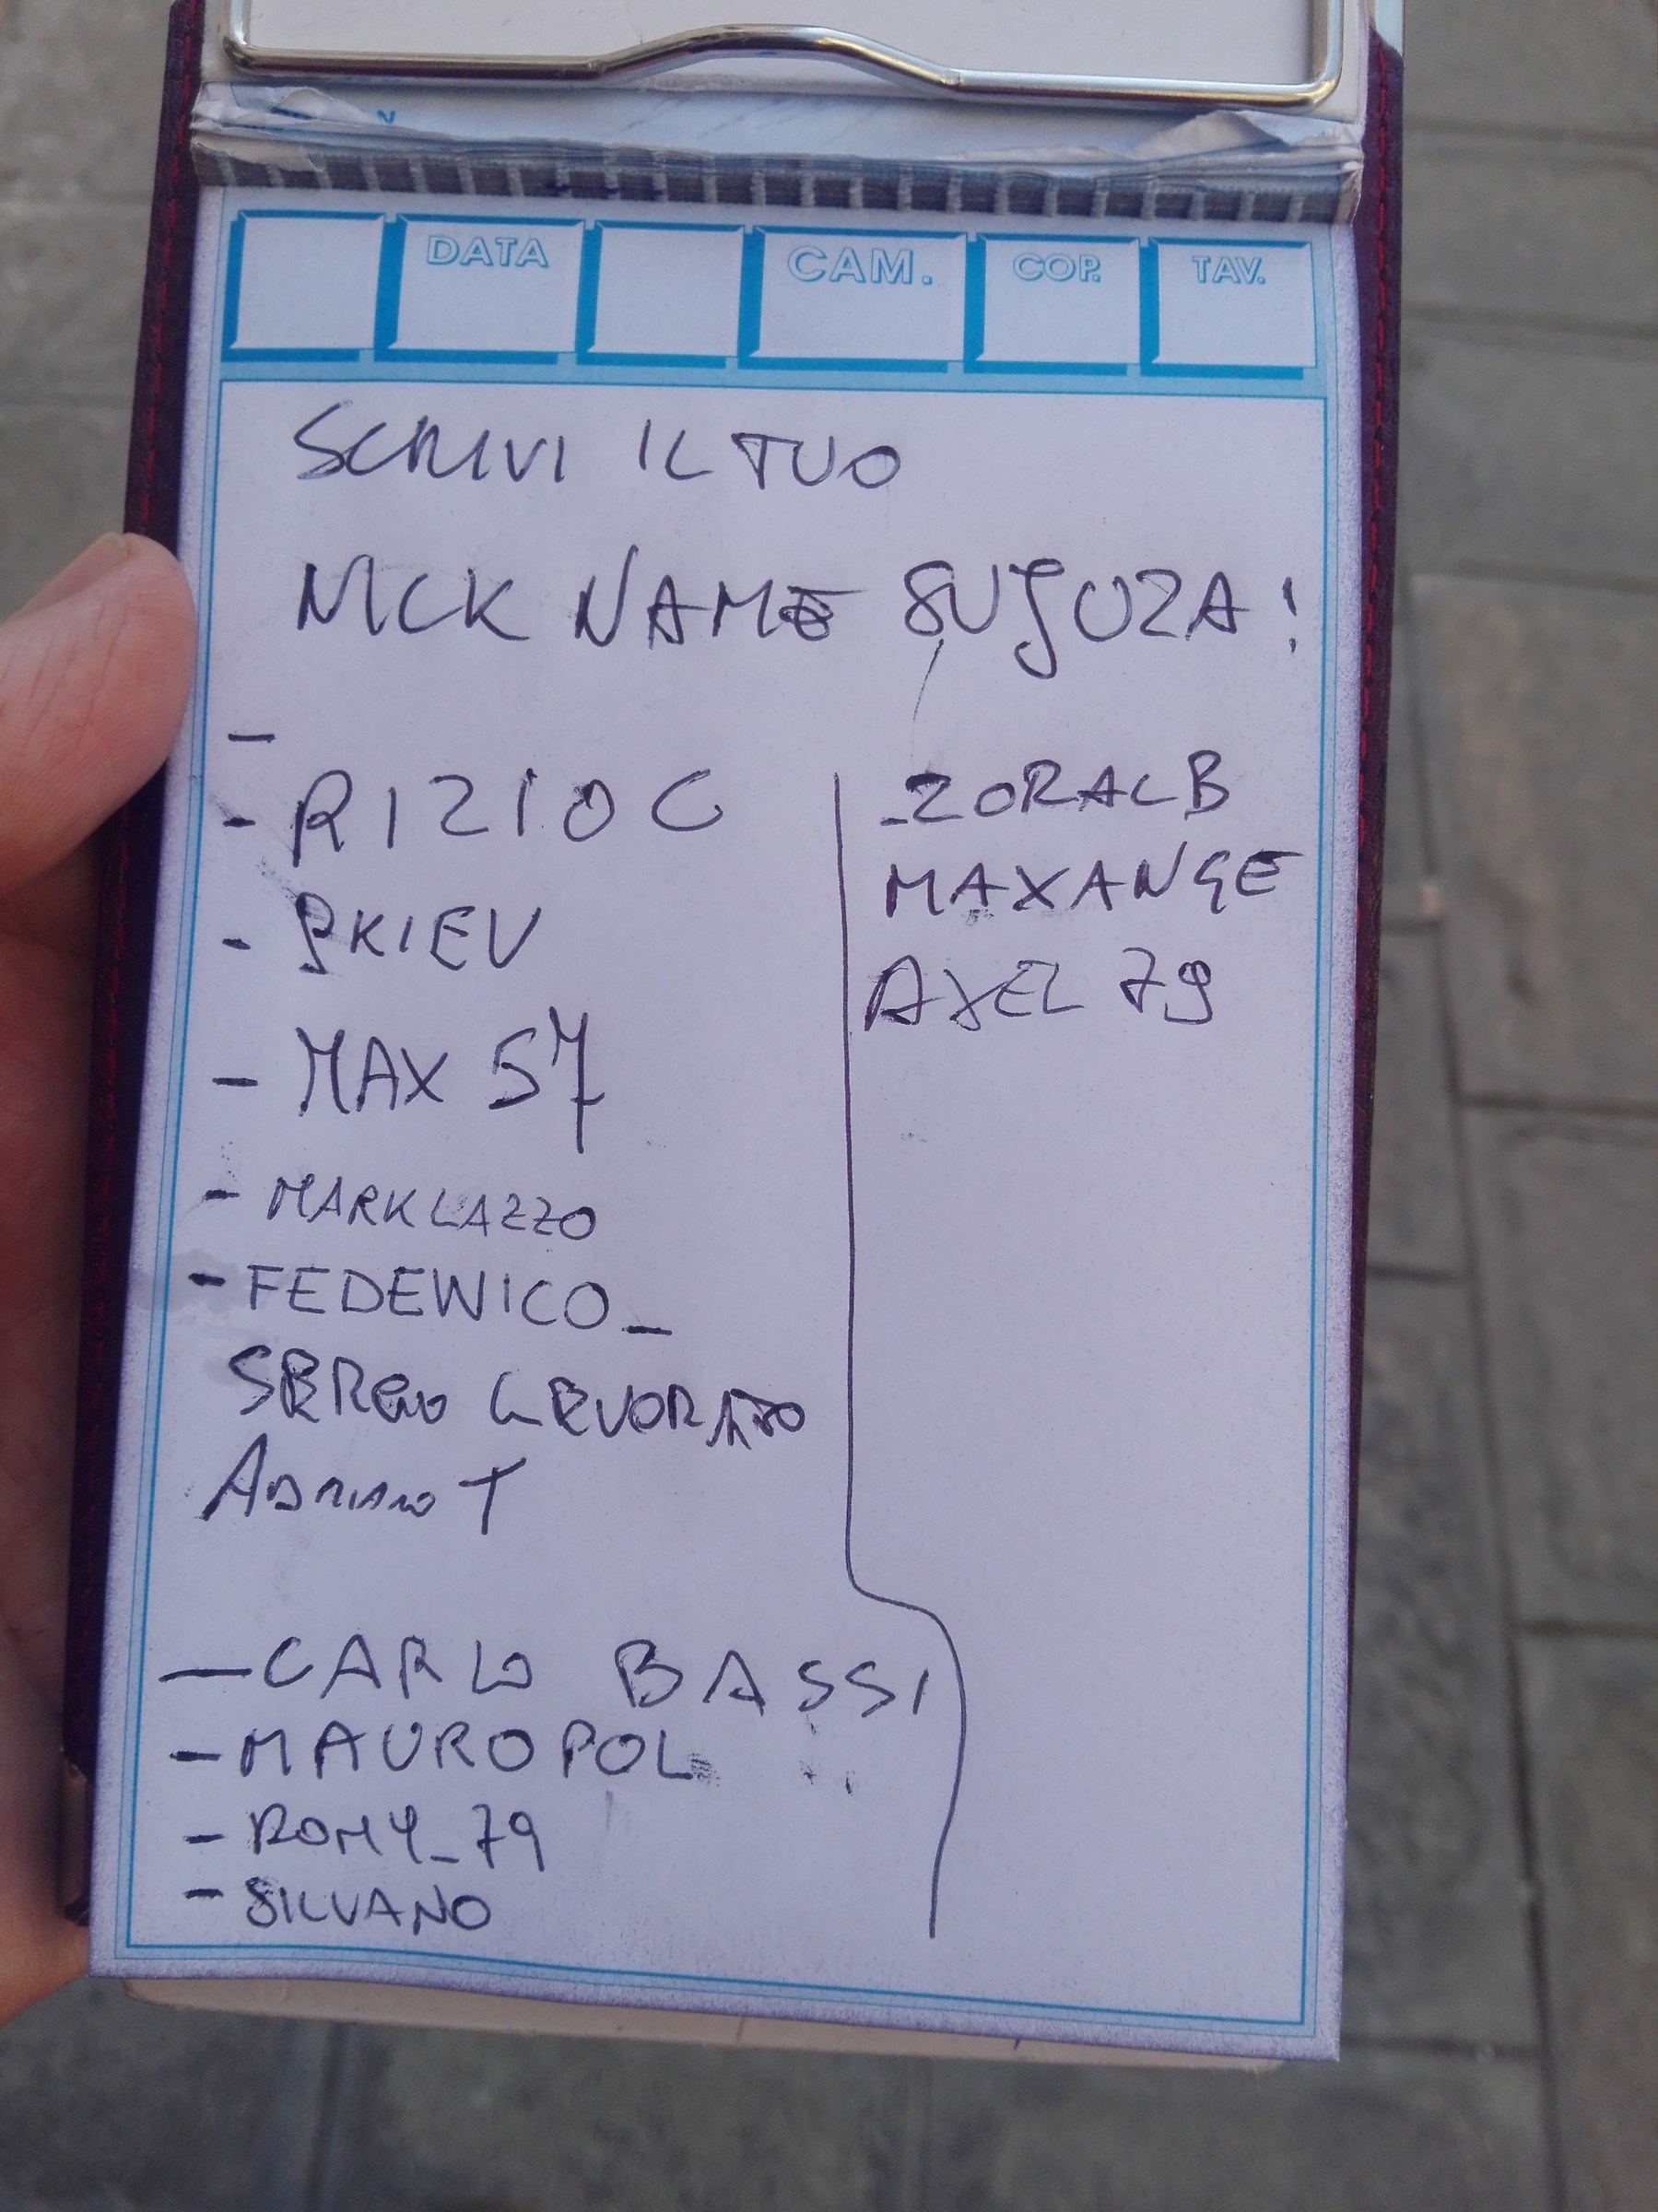 DATA CAM. COP. TAV.
SCRIVI IL TUO
NICK NAME SU JUZA!
-
- RIZIOC
- SKIEV
- MAX 57
- MARKLAZZO
- FEDEWICO_
SERGIO LEVORATO
ADRIANO T
- CARLO BASSI
- MAUROPOL
- ROMY_79
- SILVANO
- ZORALB
MAXANGE
AXEL 79